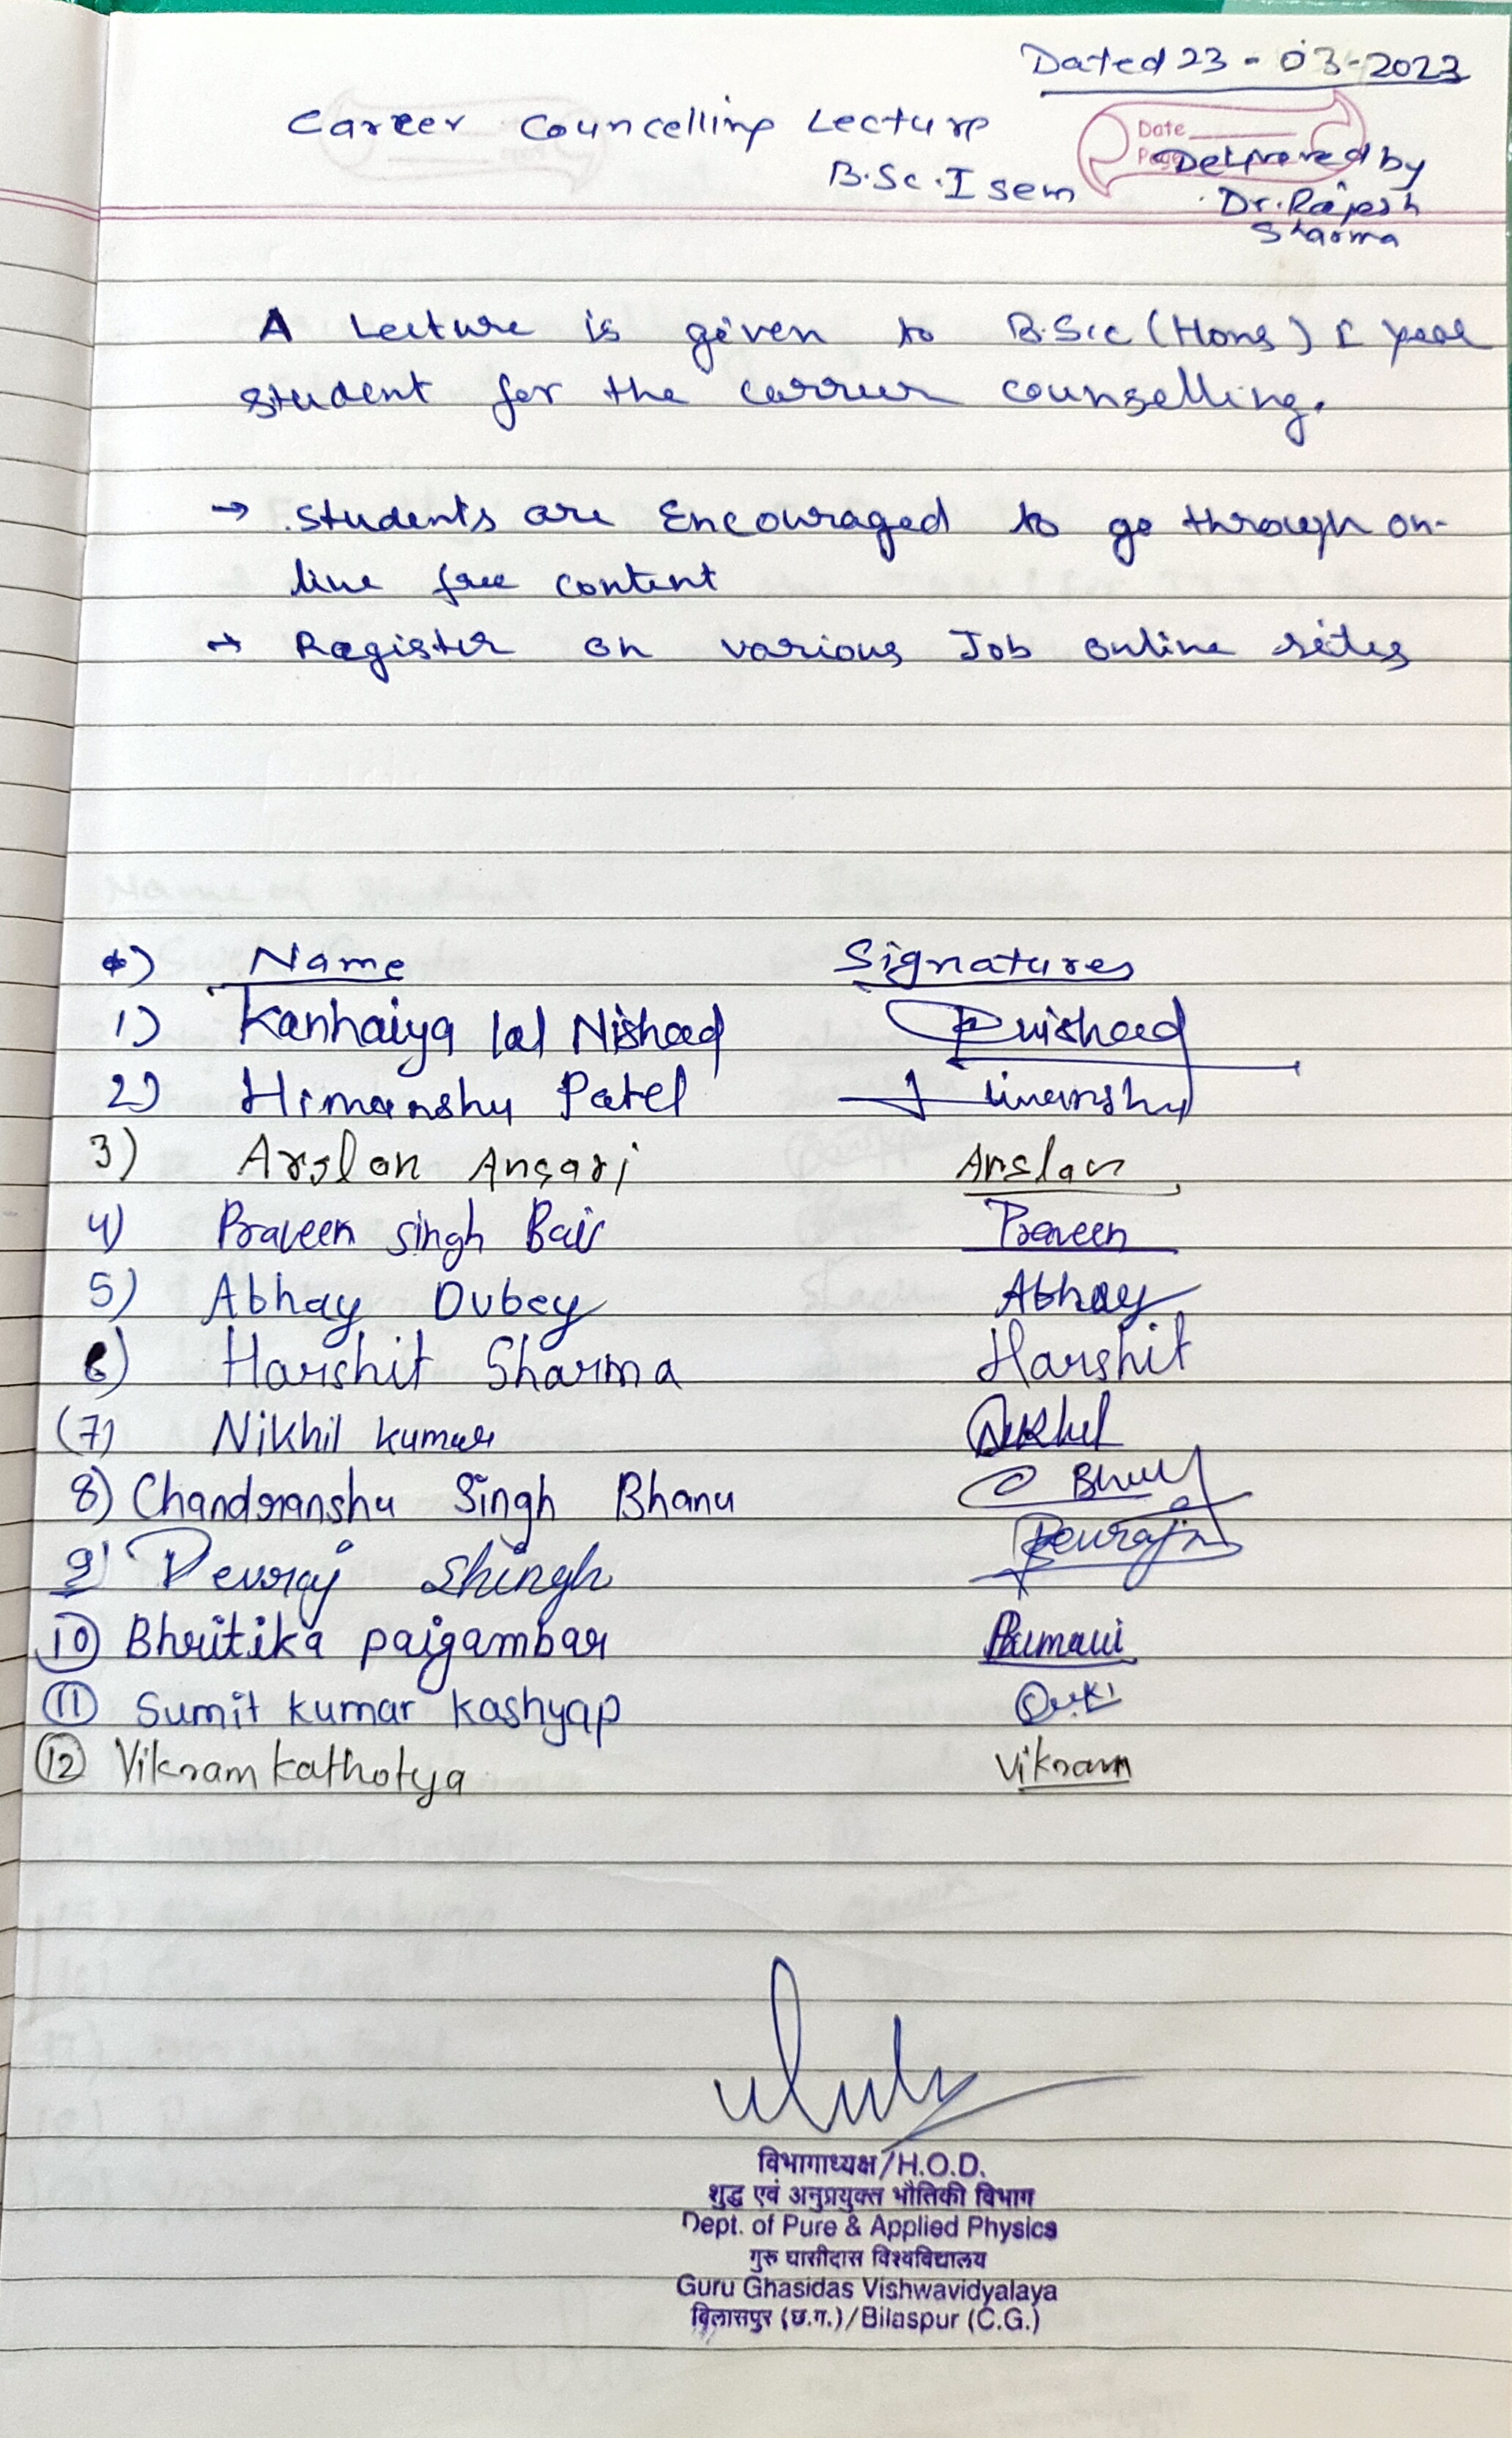 Dated 23-03-2023
Career Councelling Lecture
Date
Delivered by
B.Sc. I sem
Dr. Rajesh
Sharma
A Lecture is given to B.Sc (Hons) I year
student for the carrier counselling.
→ students are Encouraged to go through on-
line free content
→ Register on various Job online sites
Name Signatures
1) Kanhaiya lal Nishad
2) Himanshu Patel Himanshu
3) Arslan Ansari Arslan
4) Praveen Singh Bais Praveen
5) Abhay Dubey Abhay
6) Harshit Sharma Harshit
(7) Nikhil kumar Nikhil
8) Chandranshu Singh Bhanu
9) Devraj Shingh Devraj
10 Bhritika paigambar
11 Sumit kumar kashyap
12 Vikram kathotya Vikram
विभागाध्यक्ष/H.O.D.
शुद्ध एवं अनुप्रयुक्त भौतिकी विभाग
Dept. of Pure & Applied Physics
गुरु घासीदास विश्वविद्यालय
Guru Ghasidas Vishwavidyalaya
बिलासपुर (छ.ग.)/Bilaspur (C.G.)